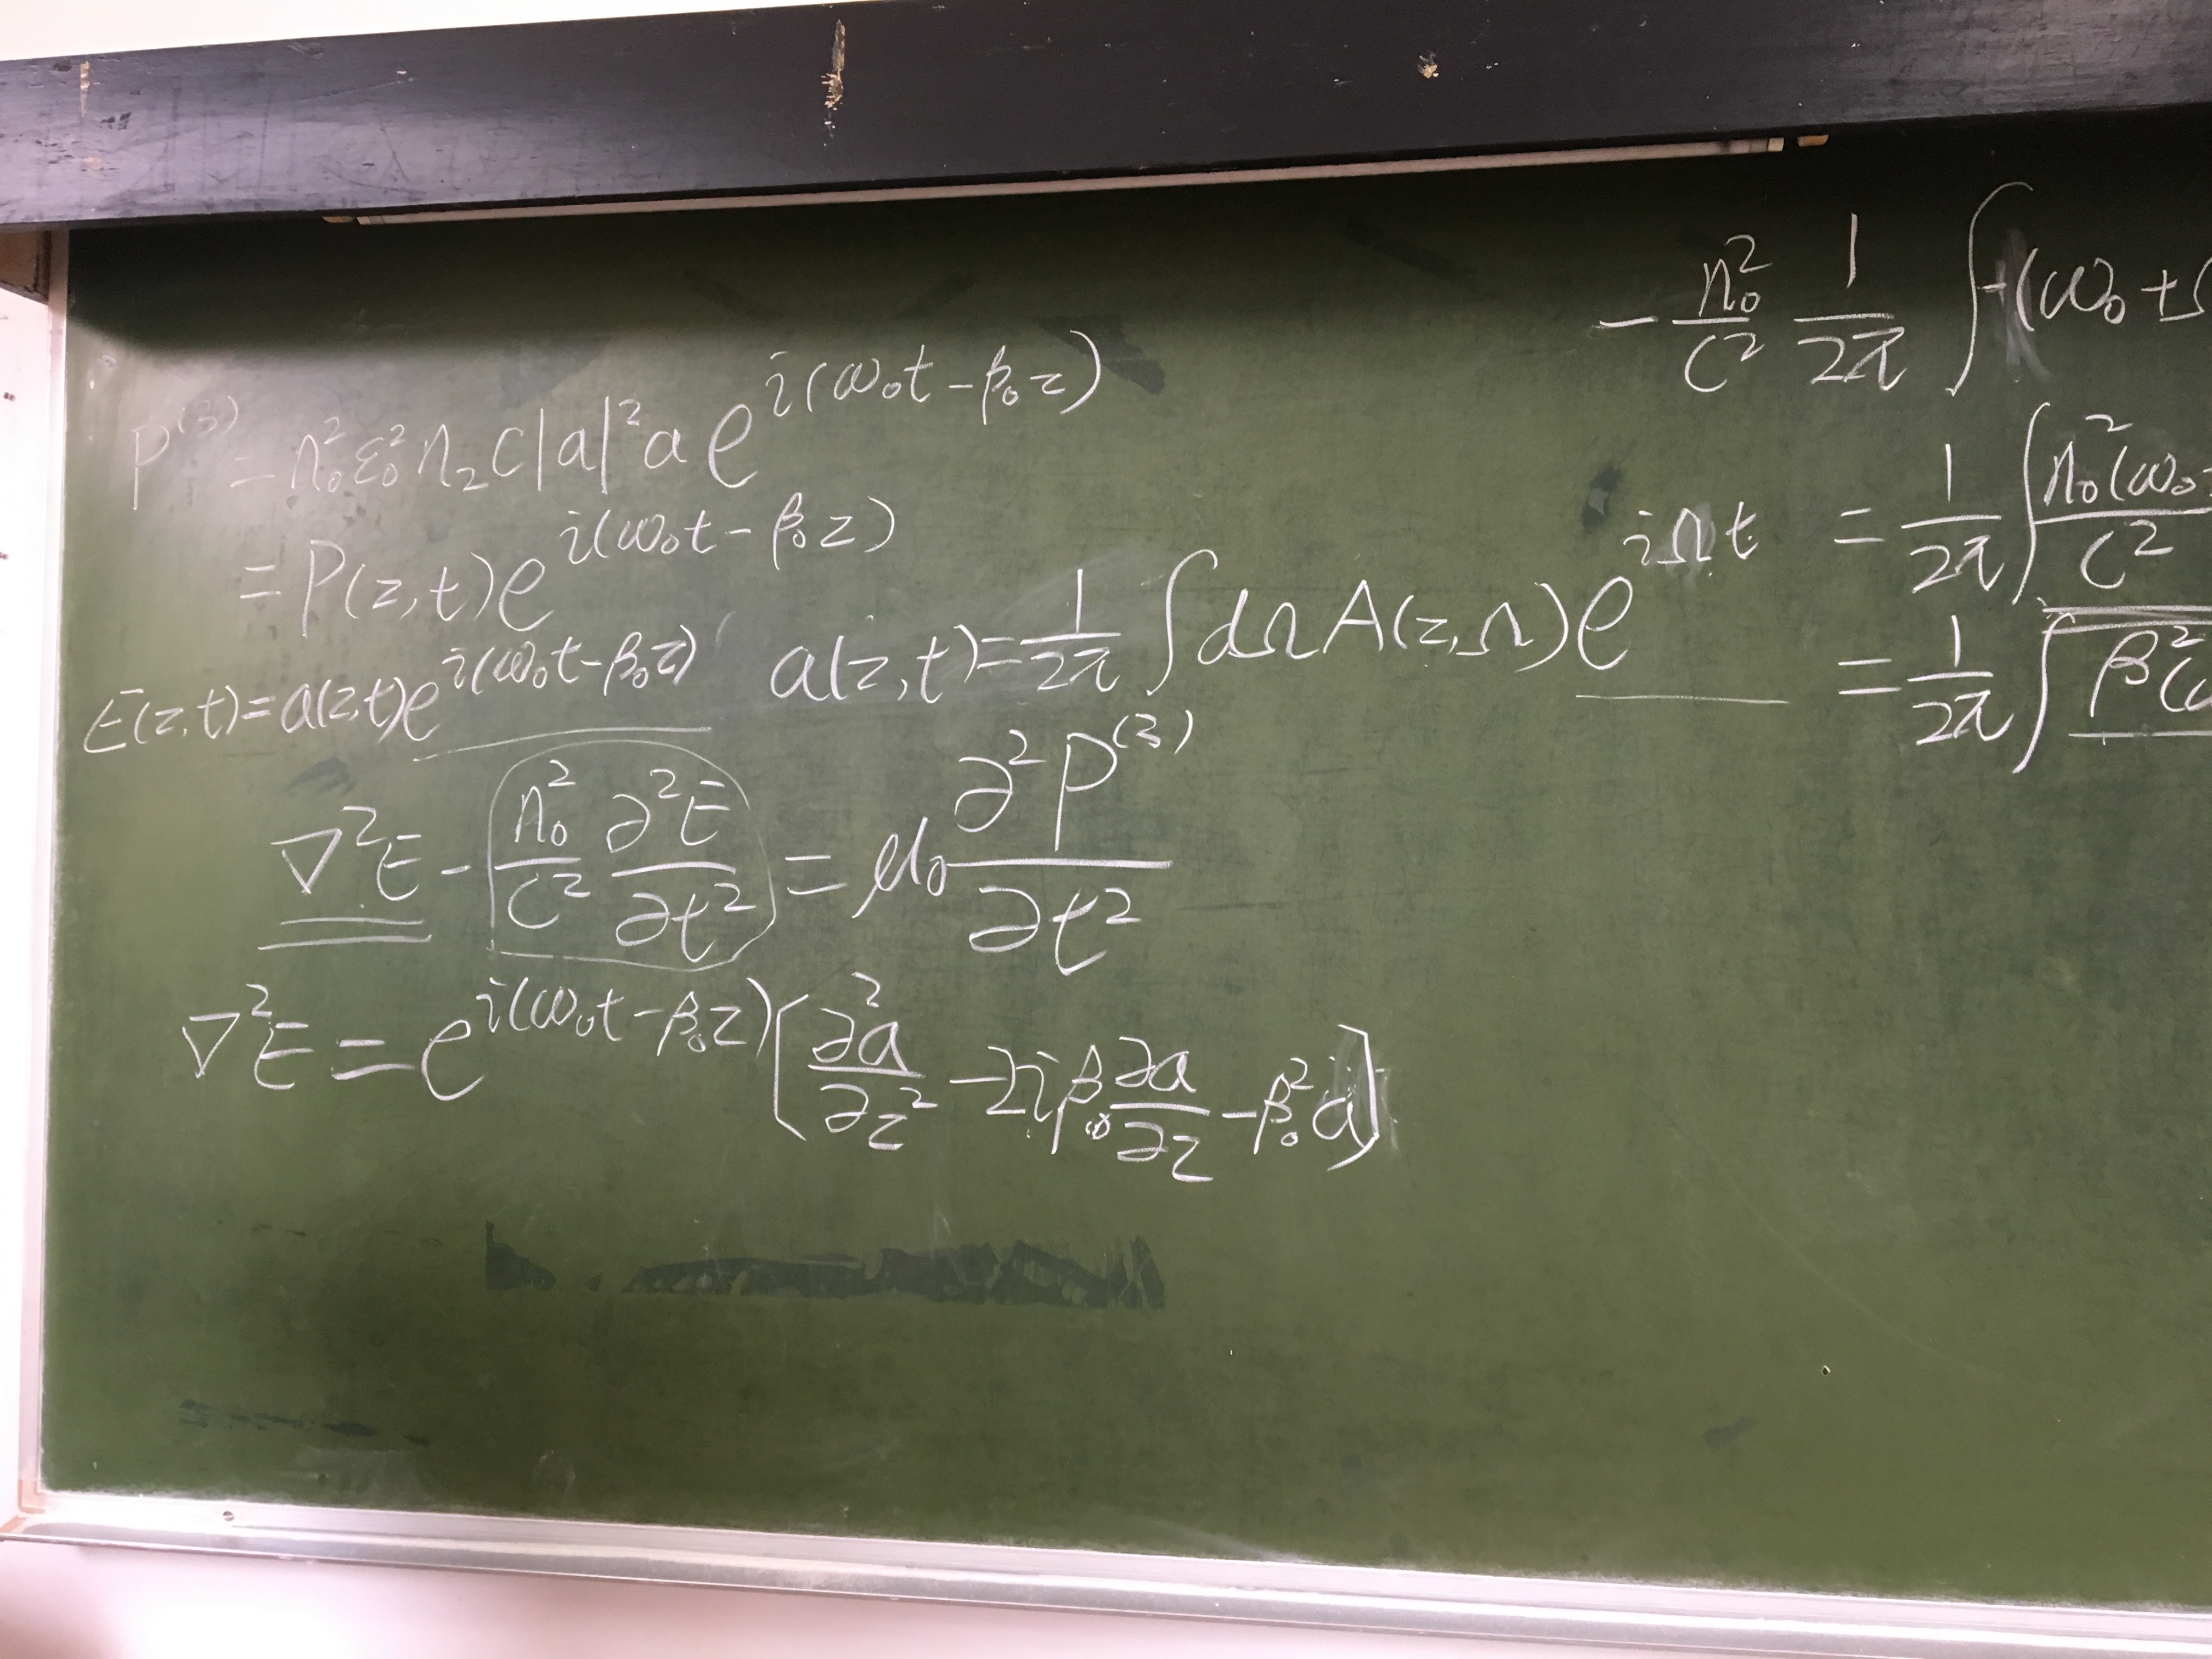 P^{(3)} = n_0^2 ε_0^2 n_2 c|a|^2 a e^{i(ω_0t - β_0z)}
= P(z,t)e^{i(ω_0t - β_0z)}
E(z,t)=a(z,t)e^{i(ω_0t-β_0z)} a(z,t)=\frac{1}{2π}∫dΩA(z,Ω)e^{iΩt}
∇^2E - \frac{n_0^2}{c^2}\frac{∂^2E}{∂t^2} = μ_0\frac{∂^2P^{(3)}}{∂t^2}
∇^2E = e^{i(ω_0t-β_0z)}[\frac{∂^2a}{∂z^2} - 2iβ_0\frac{∂a}{∂z} - β_0^2a]
-\frac{n_0^2}{c^2}\frac{1}{2π}∫-(ω_0+
=\frac{1}{2π}∫\frac{n_0^2(ω_0+}{c^2}
=\frac{1}{2π}∫β^2(